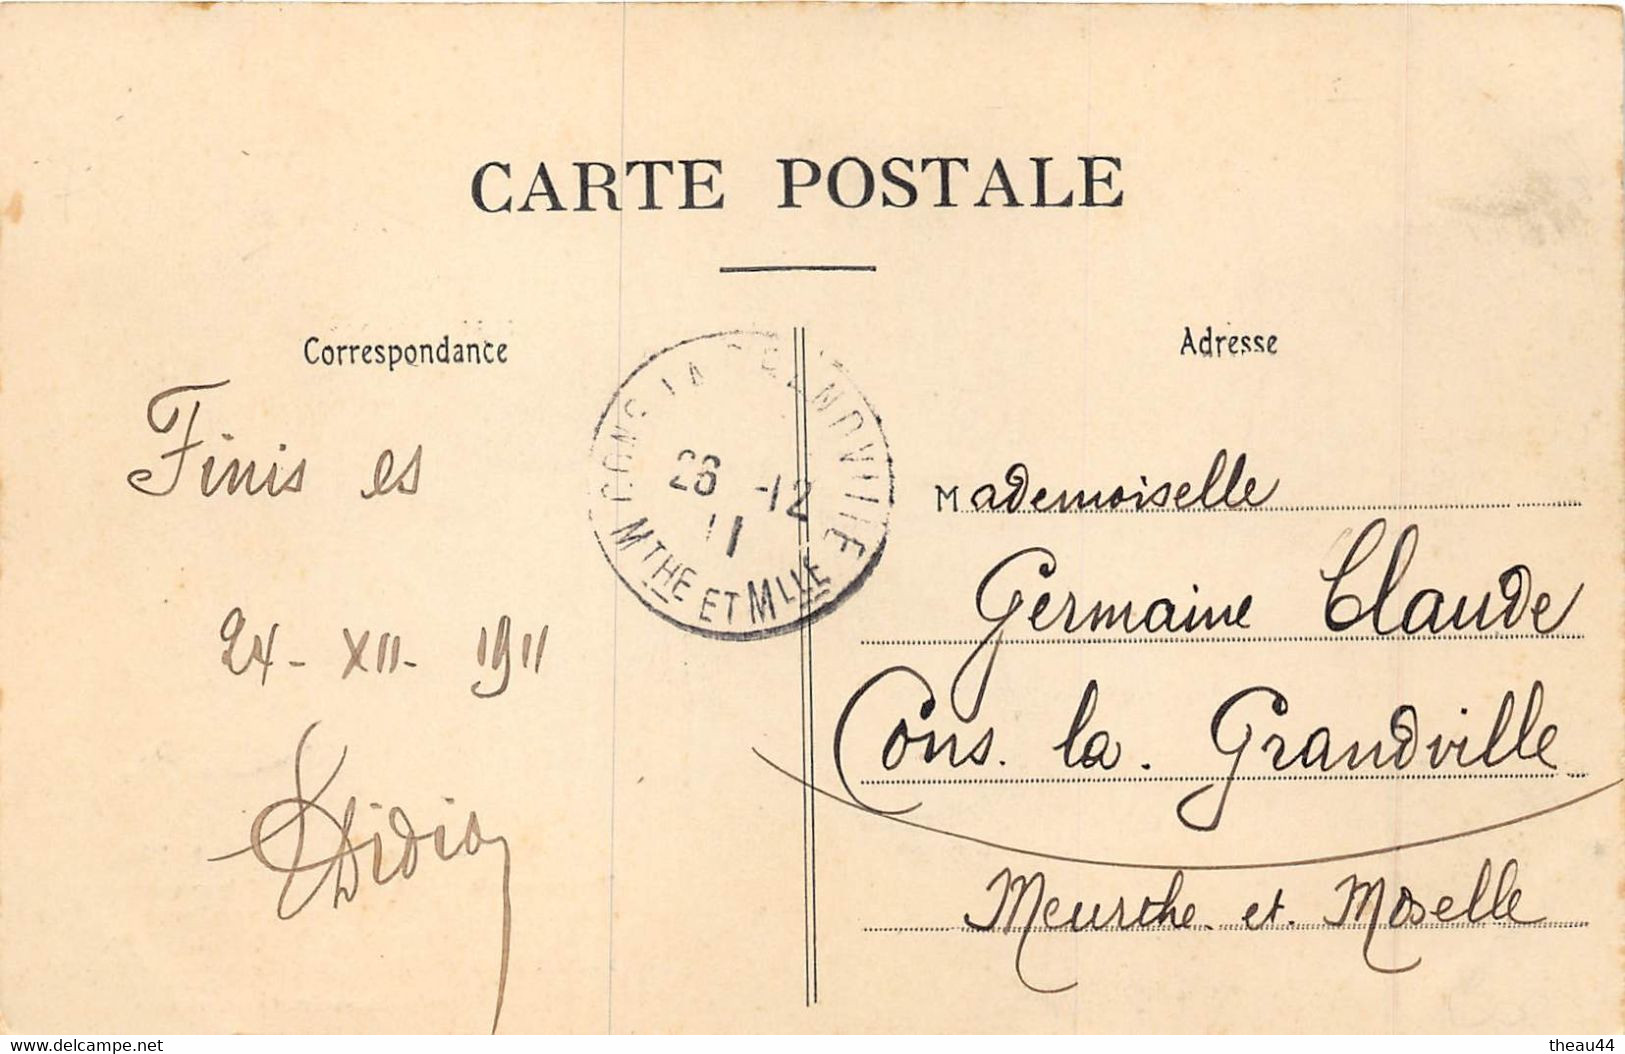 CARTE POSTALE
Correspondance
Adresse
Finis es
24 - XII - 1911
Didio
CONS LA GRANDVILLE
26 -12
11
MTHE ET MLLE
Mademoiselle
Germaine Claude
Cons. la. Grandville
Meurthe. et. Moselle
www.delcampe.net
theau44